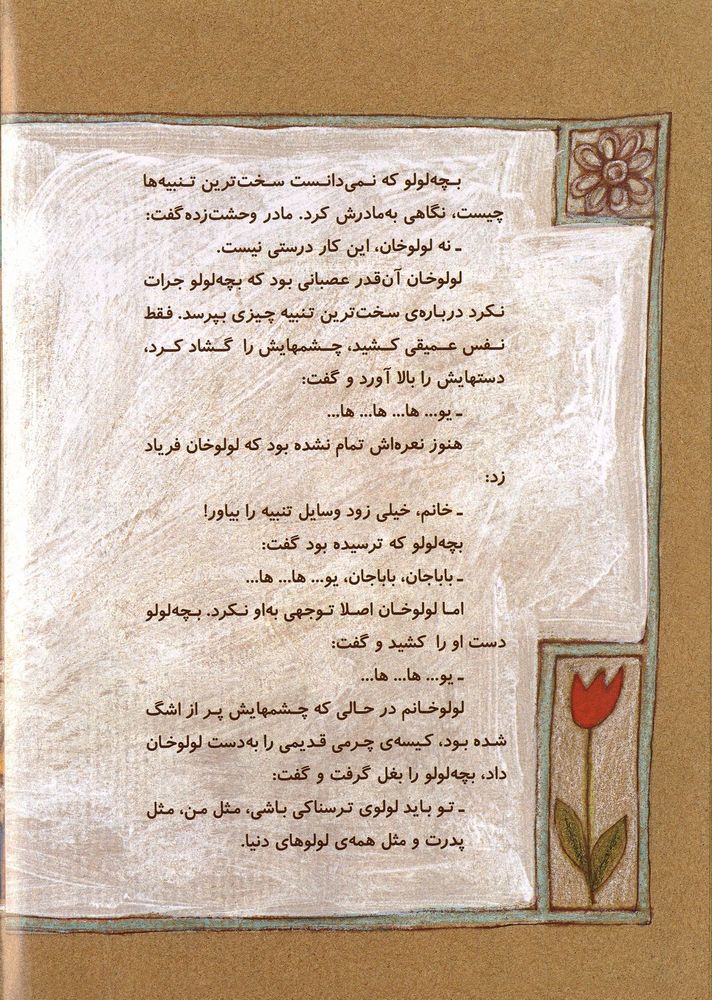 بچه‌لولو که نمی‌دانست سخت‌ترین تنبیه‌ها
چیست، نگاهی به‌مادرش کرد. مادر وحشت‌زده گفت:
ـ نه لولوخان، این کار درستی نیست.
لولوخان آن‌قدر عصبانی بود که بچه‌لولو جرات
نکرد درباره‌ی سخت‌ترین تنبیه چیزی بپرسد. فقط
نفس عمیقی کشید، چشمهایش را گشاد کرد،
دستهایش را بالا آورد و گفت:
ـ یو... ها... ها... ها...
هنوز نعره‌اش تمام نشده بود که لولوخان فریاد
زد:
ـ خانم، خیلی زود وسایل تنبیه را بیاور!
بچه‌لولو که ترسیده بود گفت:
ـ باباجان، باباجان، یو... ها... ها...
اما لولوخان اصلا توجهی به‌او نکرد. بچه‌لولو
دست او را کشید و گفت:
ـ یو... ها... ها...
لولوخانم در حالی که چشمهایش پر از اشگ
شده بود، کیسه‌ی چرمی قدیمی را به‌دست لولوخان
داد، بچه‌لولو را بغل گرفت و گفت:
ـ تو باید لولوی ترسناکی باشی، مثل من، مثل
پدرت و مثل همه‌ی لولوهای دنیا.